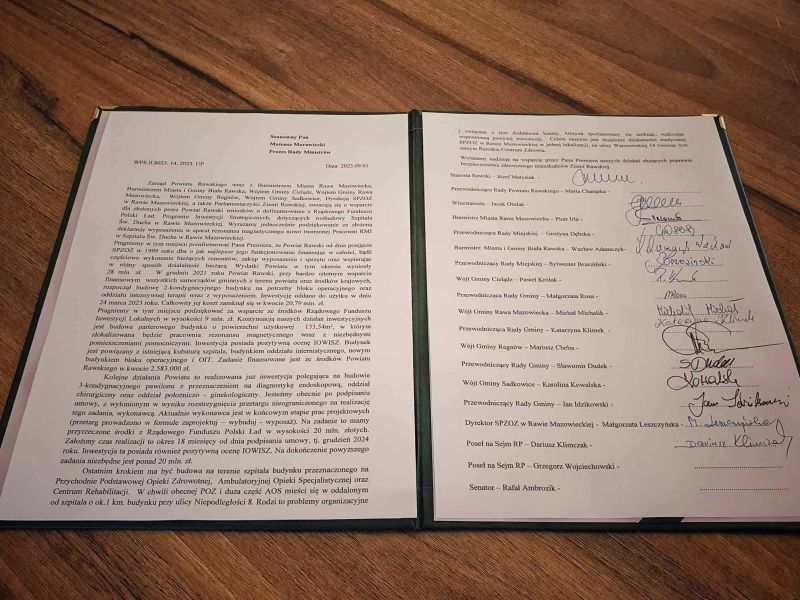 Szanowny Pan
Mateusz Morawiecki
Prezes Rady Ministrów
WPS.II.8023. 14. 2023. UP
Data: 2023.09.01
Zarząd Powiatu Rawskiego wraz z Burmistrzem Miasta Rawa Mazowiecka,
Burmistrzem Miasta i Gminy Biała Rawska, Wójtem Gminy Cielądz, Wójtem Gminy Rawa
Mazowiecka, Wójtem Gminy Regnów, Wójtem Gminy Sadkowice, Dyrekcją SPZOZ
w Rawie Mazowieckiej, a także Parlamentarzyści Ziemi Rawskiej, zwracają się o wsparcie
dla złożonych przez Powiat Rawski wniosków o dofinansowanie z Rządowego Funduszu
Polski Ład: Programu Inwestycji Strategicznych, dotyczących rozbudowy Szpitala
Św. Ducha w Rawie Mazowieckiej. Wyrażamy jednocześnie podziękowanie za złożoną
deklarację wyposażenia w aparat rezonansu magnetycznego nowo tworzonej Pracowni RMI
w Szpitalu Św. Ducha w Rawie Mazowieckiej.
Pragniemy w tym miejscu poinformować Pana Premiera, że Powiat Rawski od dnia przejęcia
SPZOZ w 1999 roku dba o jak najlepsze jego funkcjonowanie finansując w całości, bądź
częściowo wykonanie bieżących remontów, zakup wyposażenia i sprzętu oraz wspierając
w różny sposób działalność bieżącą. Wydatki Powiatu w tym okresie wyniosły
28 mln. zł. W grudniu 2021 roku Powiat Rawski, przy bardzo istotnym wsparciu
finansowym wszystkich samorządów gminnych z terenu powiatu oraz środków krajowych,
rozpoczął budowę 2-kondygnacyjnego budynku na potrzeby bloku operacyjnego oraz
oddziału intensywnej terapii wraz z wyposażeniem. Inwestycję oddano do użytku w dniu
24 marca 2023 roku. Całkowity jej koszt zamknął się w kwocie 20,79 mln. zł.
Pragniemy w tym miejscu podziękować za wsparcie ze środków Rządowego Funduszu
Inwestycji Lokalnych w wysokości 9 mln. zł. Kontynuacją naszych działań inwestycyjnych
jest budowa parterowego budynku o powierzchni użytkowej 133,54m², w którym
zlokalizowana będzie pracownia rezonansu magnetycznego wraz z niezbędnymi
pomieszczeniami pomocniczymi. Inwestycja posiada pozytywną ocenę IOWISZ. Budynek
jest powiązany z istniejącą kubaturą szpitala, budynkiem oddziału internistycznego, nowym
budynkiem bloku operacyjnego i OIT. Zadanie finansowane jest ze środków Powiatu
Rawskiego w kwocie 2.583.000 zł.
Kolejne działania Powiatu to realizowana już inwestycja polegająca na budowie
3-kondygnacyjnego pawilonu z przeznaczeniem na diagnostykę endoskopową, oddział
chirurgiczny oraz oddział położniczo - ginekologiczny. Jesteśmy obecnie po podpisaniu
umowy, z wyłonionym w wyniku rozstrzygnięcia przetargu nieograniczonego na realizację
tego zadania, wykonawcą. Aktualnie wykonawca jest w końcowym etapie prac projektowych
(przetarg prowadzono w formule zaprojektuj – wybuduj - wyposaż). Na zadanie to mamy
przyrzeczone środki z Rządowego Funduszu Polski Ład w wysokości 20 mln. złotych.
Założony czas realizacji to okres 18 miesięcy od dnia podpisania umowy, tj. grudzień 2024
roku. Inwestycja ta posiada również pozytywną ocenę IOWISZ. Na dokończenie powyższego
zadania niezbędne jest ponad 20 mln. zł.
Ostatnim krokiem ma być budowa na terenie szpitala budynku przeznaczonego na
Przychodnie Podstawowej Opieki Zdrowotnej, Ambulatoryjnej Opieki Specjalistycznej oraz
Centrum Rehabilitacji. W chwili obecnej POZ i duża część AOS mieści się w oddalonym
od szpitala o ok.1 km. budynku przy ulicy Niepodległości 8. Rodzi to problemy organizacyjne
i związane z tym dodatkowe koszty, których spodziewamy się uniknąć, realizując
wspomnianą powyżej inwestycję. Celem naszym jest skupienie działalności medycznej
SPZOZ w Rawie Mazowieckiej w jednej lokalizacji, na ulicy Warszawskiej 14 tworząc tym
samym Rawskie Centrum Zdrowia.
Wyrażamy nadzieję na wsparcie przez Pana Premiera naszych działań służących poprawie
bezpieczeństwa zdrowotnego mieszkańców Ziemi Rawskiej.
Starosta Rawski – Józef Matysiak -
Przewodniczący Rady Powiatu Rawskiego – Maria Charążka -
Wicestarosta – Jacek Otulak -
Burmistrz Miasta Rawa Mazowiecka – Piotr Irla -
Przewodnicząca Rady Miejskiej – Grażyna Dębska -
Burmistrz Miasta i Gminy Biała Rawska – Wacław Adamczyk-
Przewodniczący Rady Miejskiej – Sylwester Brzeziński -
Wójt Gminy Cielądz – Paweł Królak -
Przewodnicząca Rady Gminy – Małgorzata Rosa -
Wójt Gminy Rawa Mazowiecka – Michał Michalik -
Przewodnicząca Rady Gminy – Katarzyna Klimek -
Wójt Gminy Regnów – Mariusz Cheba -
Przewodniczący Rady Gminy – Sławomir Dudek -
Wójt Gminy Sadkowice – Karolina Kowalska -
Przewodniczący Rady Gminy – Jan Idzikowski -
Dyrektor SPZOZ w Rawie Mazowieckiej - Małgorzata Leszczyńska -
Poseł na Sejm RP – Dariusz Klimczak -
Poseł na Sejm RP – Grzegorz Wojciechowski -
Senator – Rafał Ambrozik -